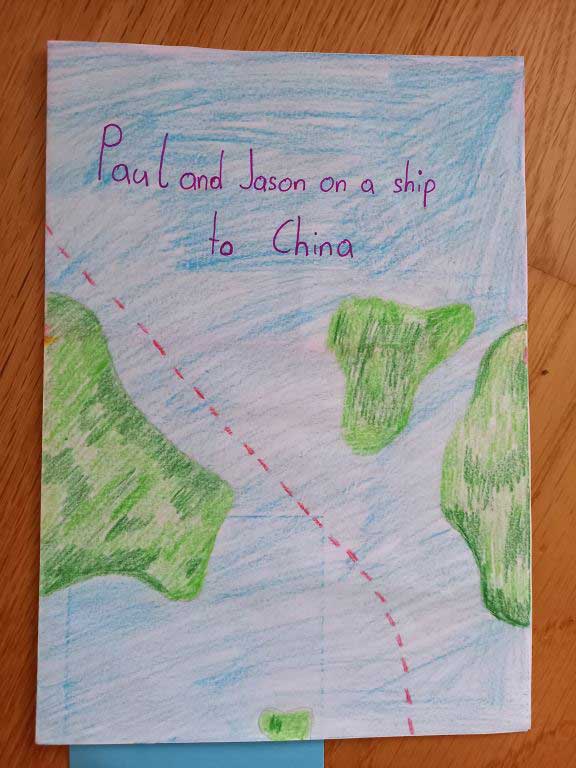 Paul and Jason on a ship
to China